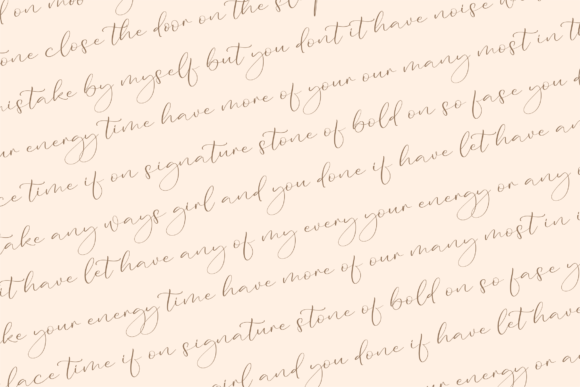 on moo
one close the door on the st
mistake by myself but you dont it have noise w
ur energy time have more of your our many most in t
ce time if on signature stone of bold on so fase you d
take any ways girl and you done if have let have an
it have let have any of my every your energy or any
ke your energy time have more of our many most in
lace time if on signature stone of bold on so fase y
girl and you done if have let have
ur energy or a